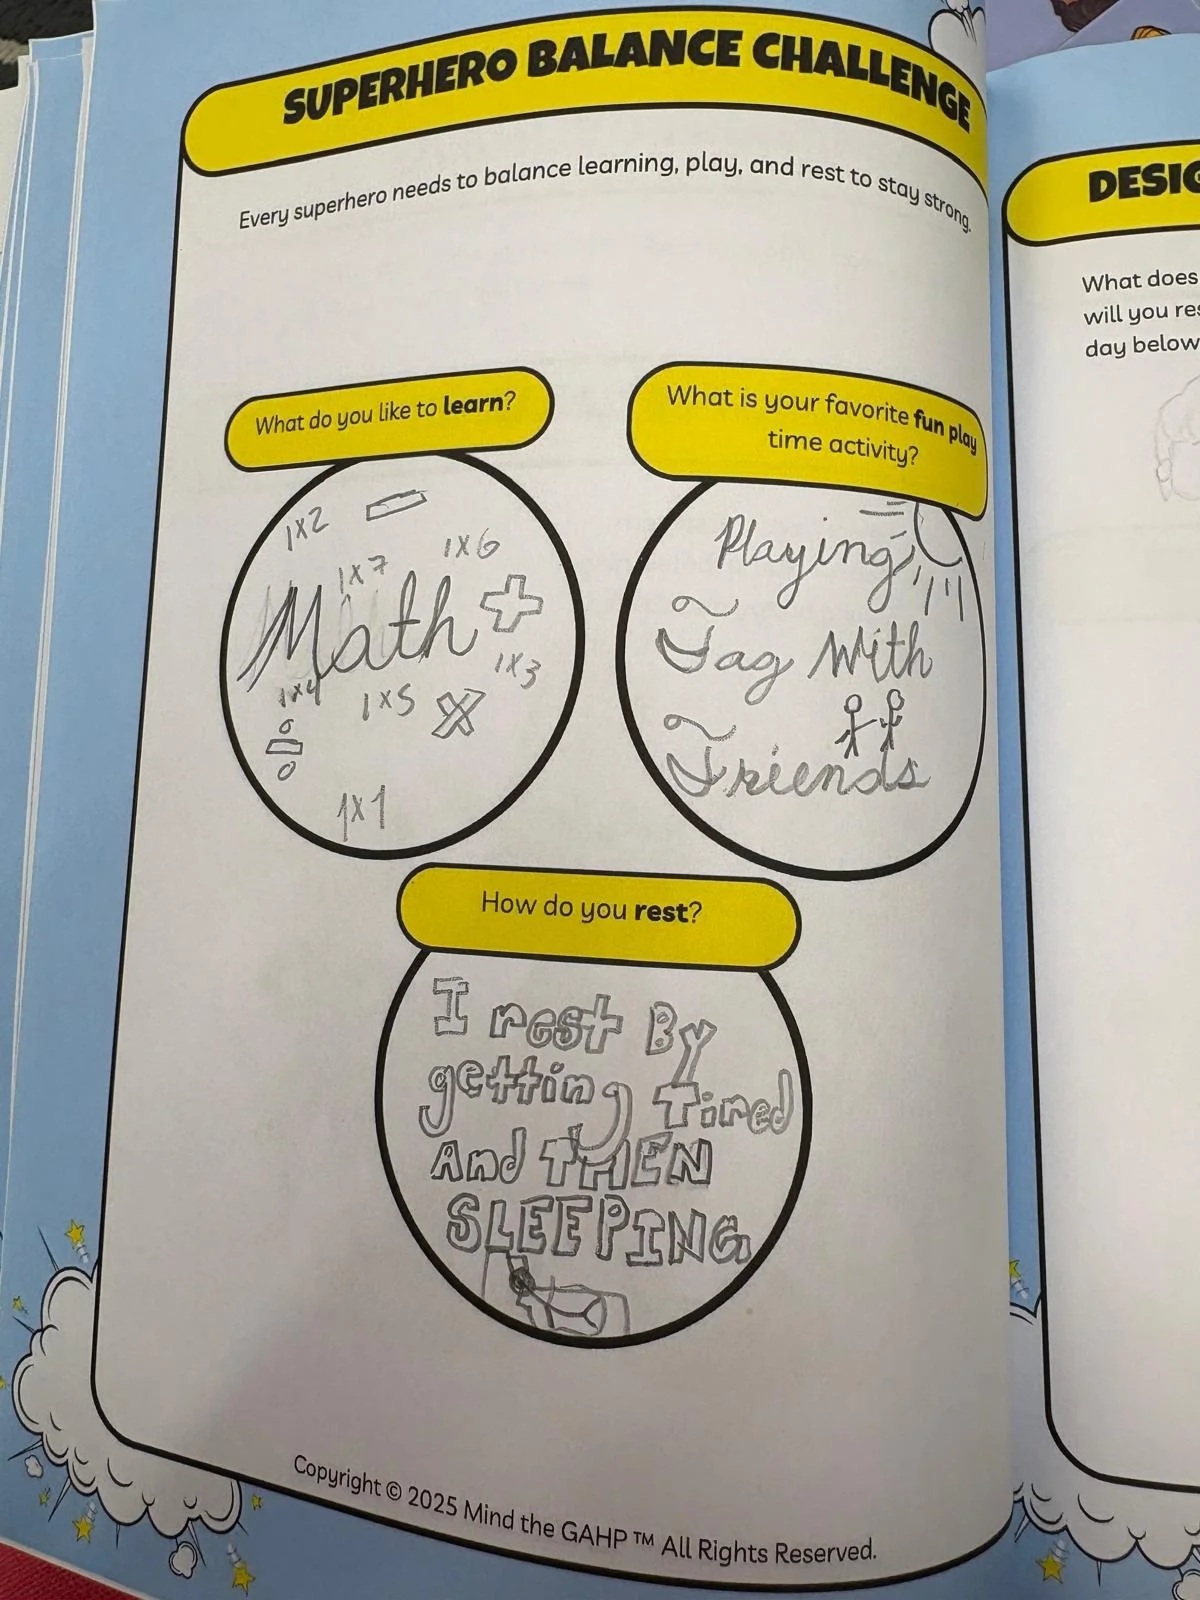 SUPERHERO BALANCE CHALLENGE
Every superhero needs to balance learning, play, and rest to stay strong.
What do you like to learn?
1x2
1x7
1x6
Math
1x3
1x4
1x5
1x1
What is your favorite fun play
time activity?
Playing
Tag With
Friends
How do you rest?
I rest By
getting Tired
And THEN
SLEEPING.
Copyright © 2025 Mind the GAHP ™ All Rights Reserved.
DESIG
What does
will you res
day below